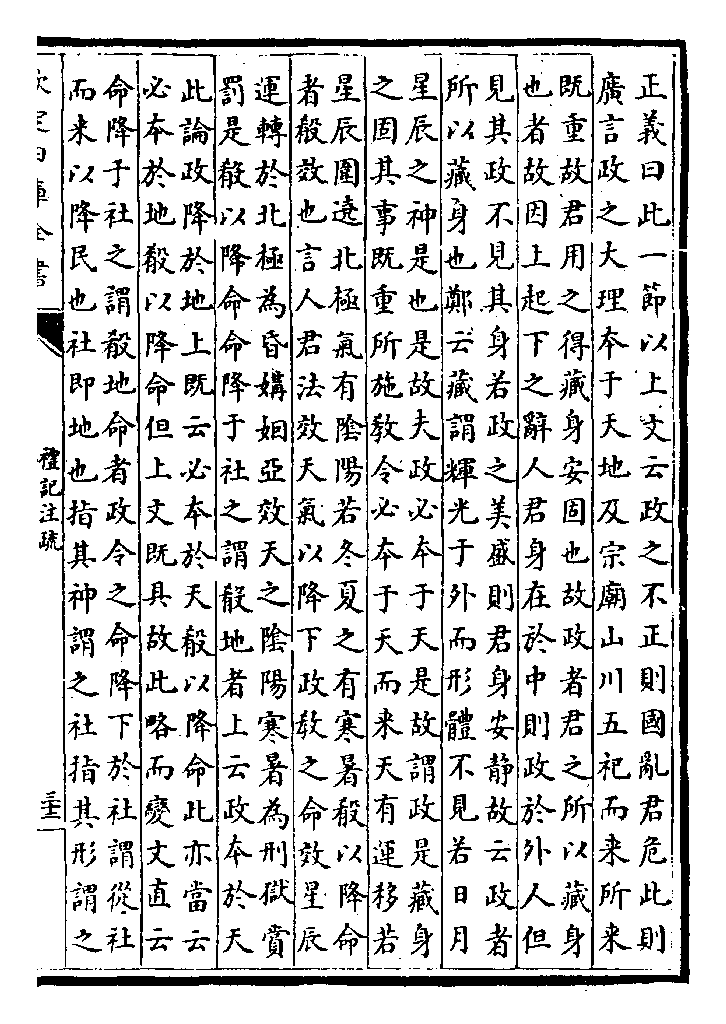 正義曰此一節以上文云政之不正則國亂君危此則
廣言政之大理本于天地及宗廟山川五祀而来所来
既重故君用之得藏身安固也故政者君之所以藏身
也者故因上起下之辭人君身在於中則政於外人但
見其政不見其身若政之美盛則君身安静故云政者
所以藏身也鄭云藏謂輝光于外而形體不見若日月
星辰之神是也是故夫政必本于天是故謂政是藏身
之固其事既重所施教令必本于天而来天有運移若
星辰圍遶北極氣有陰陽若冬夏之有寒暑殽以降命
者殽效也言人君法效天氣以降下政教之命效星辰
運轉於北極為昏媾姻亞效天之陰陽寒暑為刑獄賞
罰是殽以降命命降于社之謂殽地者上云政本於天
此論政降於地上既云必本於天殽以降命此亦當云
必本於地殽以降命但上文既具故此略而變文直云
命降于社之謂殽地命者政令之命降下於社謂從社
而来以降民也社即地也指其神謂之社指其形謂之
欽定四庫全書
禮記注疏
三十二